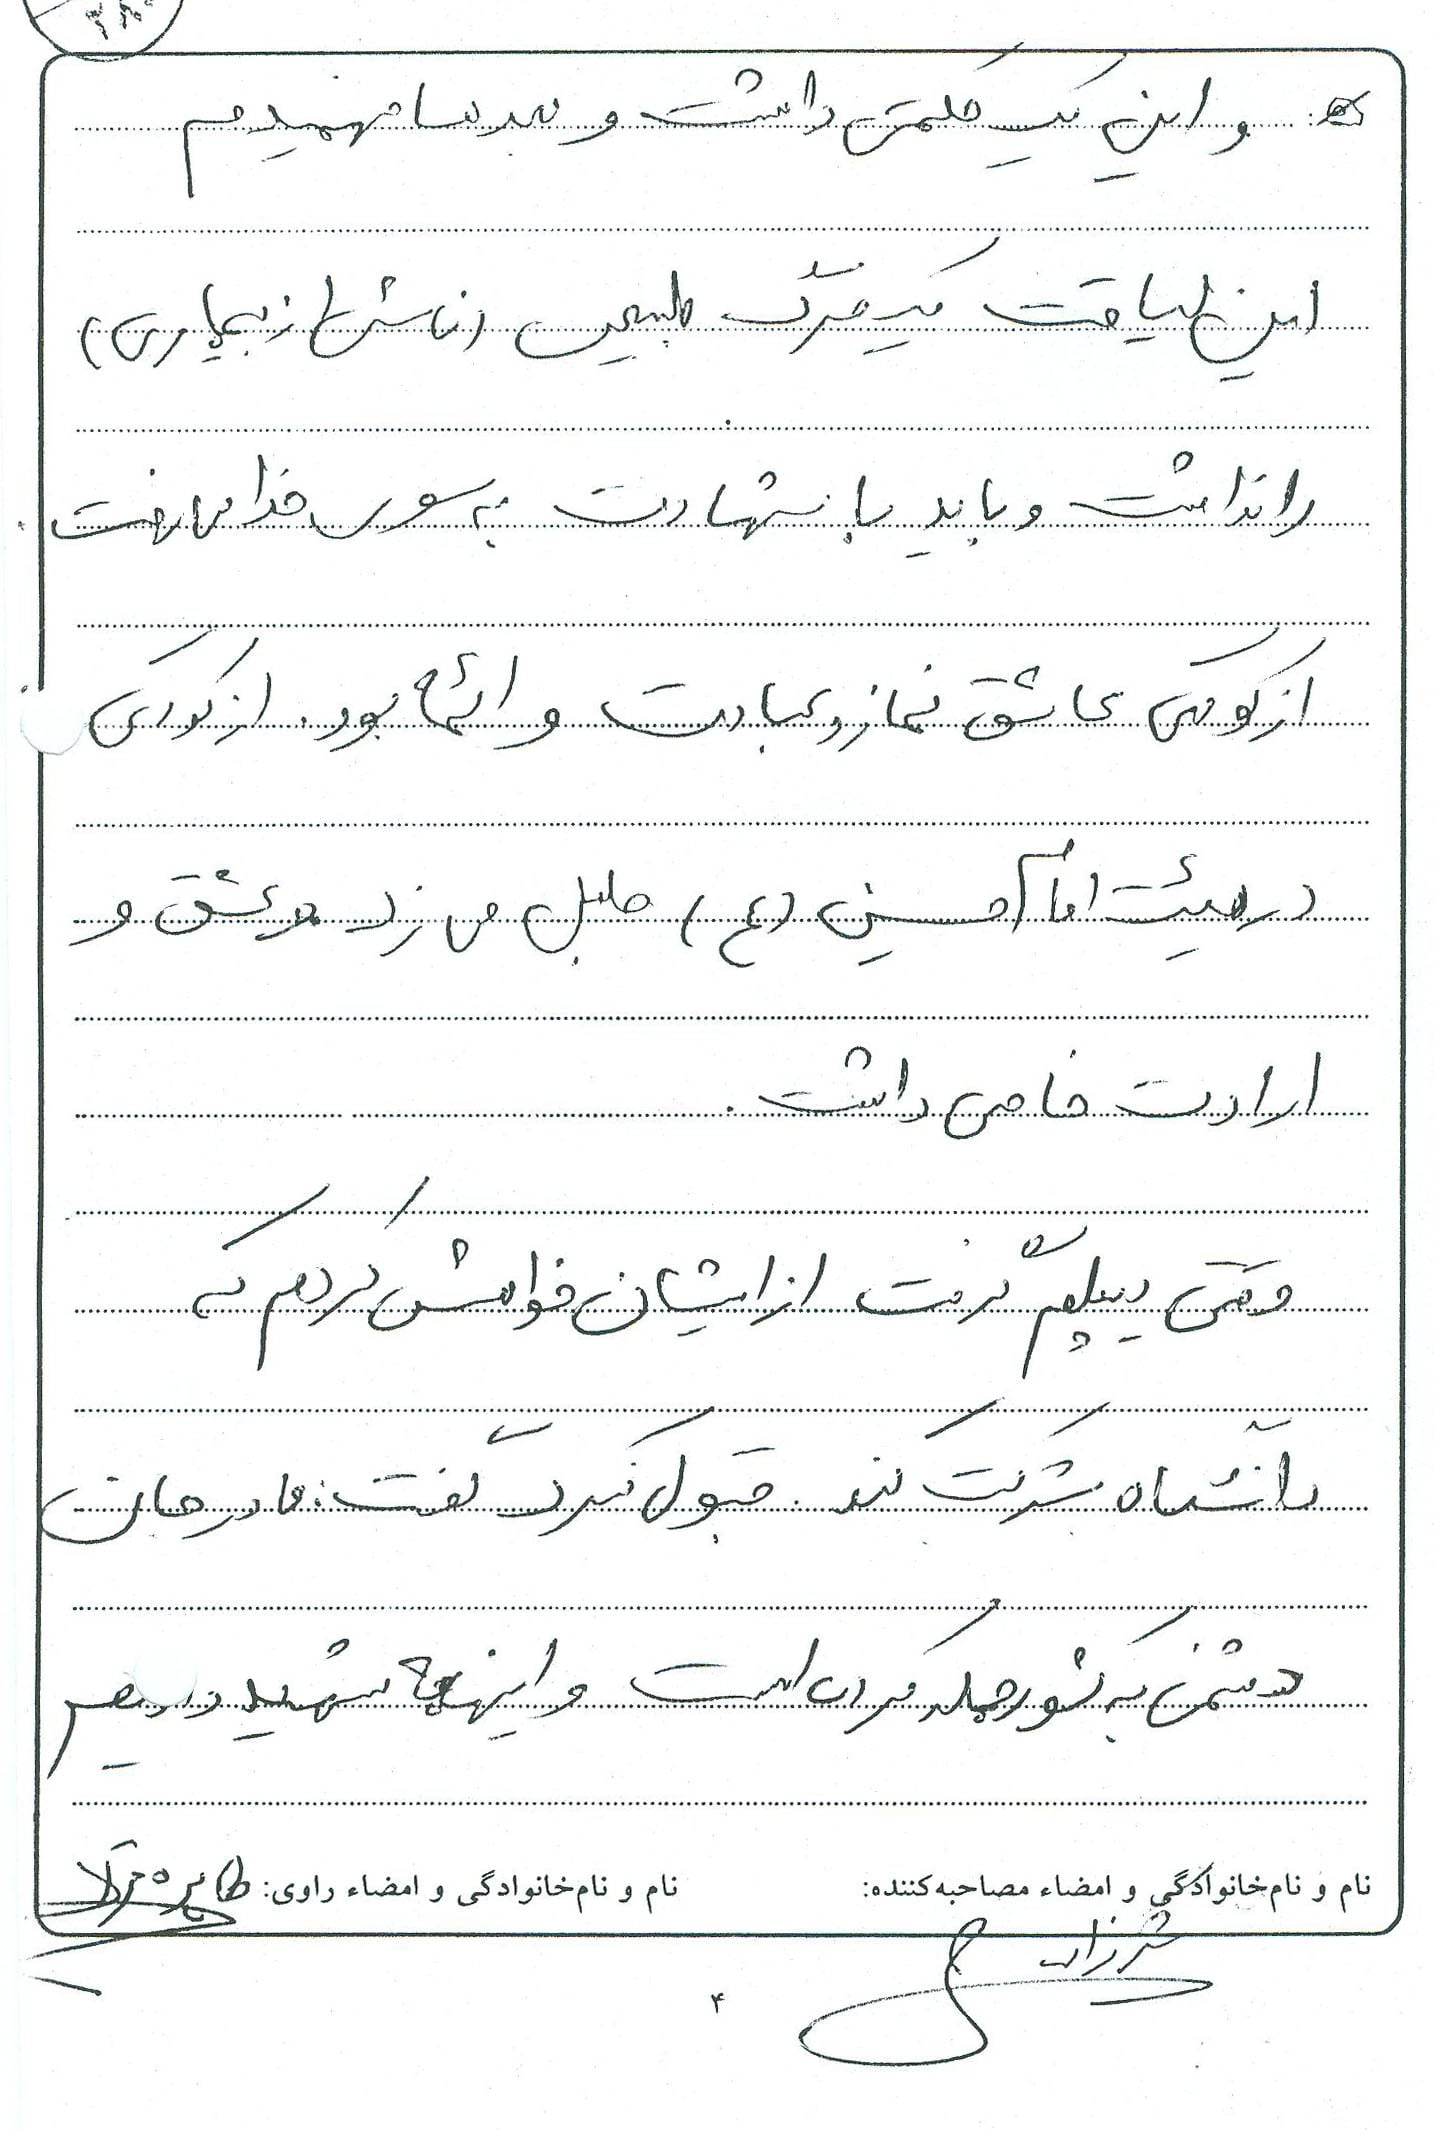 و این یک حکمتی داشت و بعدها فهمیدم
این لیاقت یک مرگ طبیعی (ناشی از بیماری)
را نداشت و باید با شهادت به سوی خدا می رفت.
از کودکی عاشق نماز و عبادت و ائمه بود. از کودکی
در هیئت امام حسین (ع) طبل می زد و عشق و
ارادت خاصی داشت.
وقتی دیپلم گرفت از ایشان خواهش کردم که
دانشگاه شرکت کند. قبول نکرد گفت: مادر جان
دشمن به کشور حمله کرده است و اینهمه شهید دادیم
نام و نام‌خانوادگی و امضاء مصاحبه‌کننده:
نام و نام‌خانوادگی و امضاء راوی: طاهره
۴